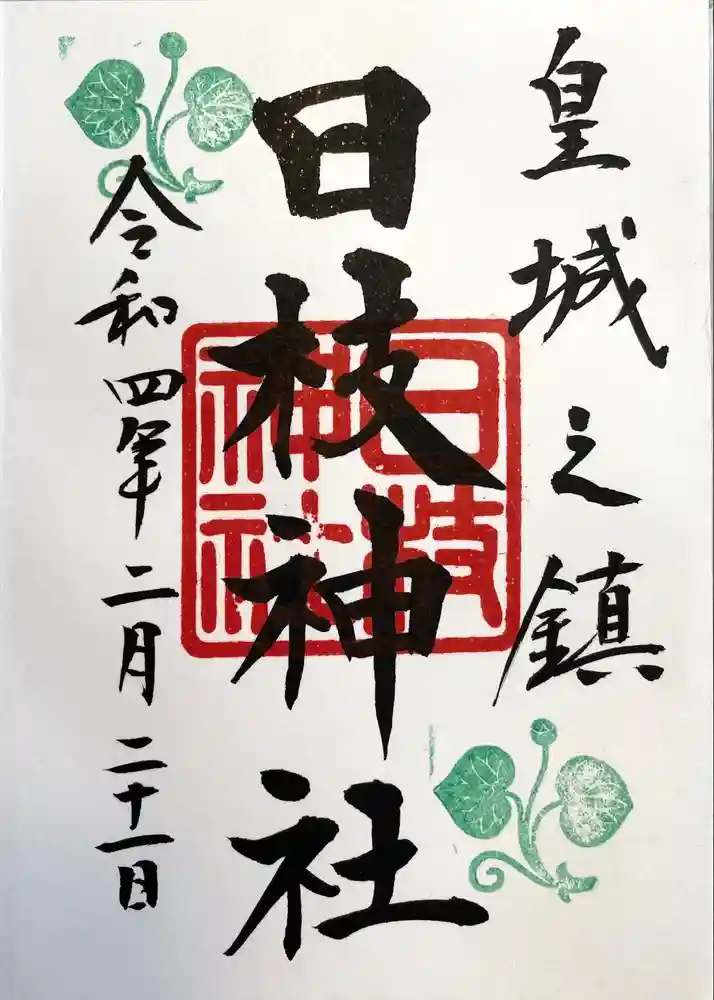 皇城之鎮
日枝神社
日枝神社
令和四年二月二十一日